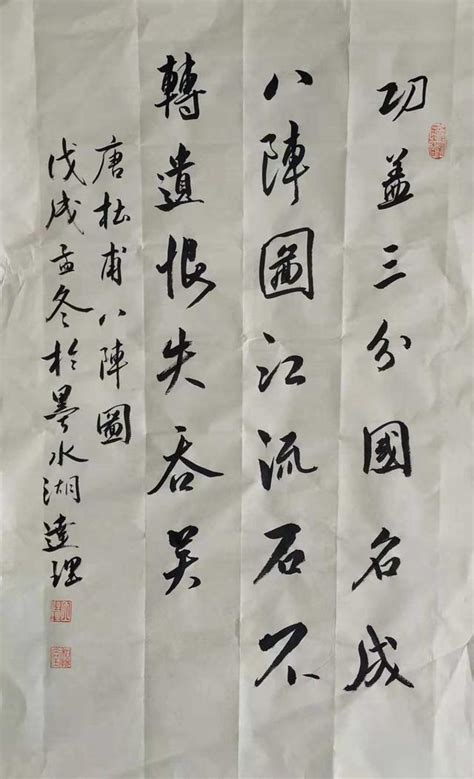 功盖三分國名成
八陣圖江流石不
轉遺恨失吞吴
唐杜甫八陣圖
戊戌孟冬於墨水湖達理